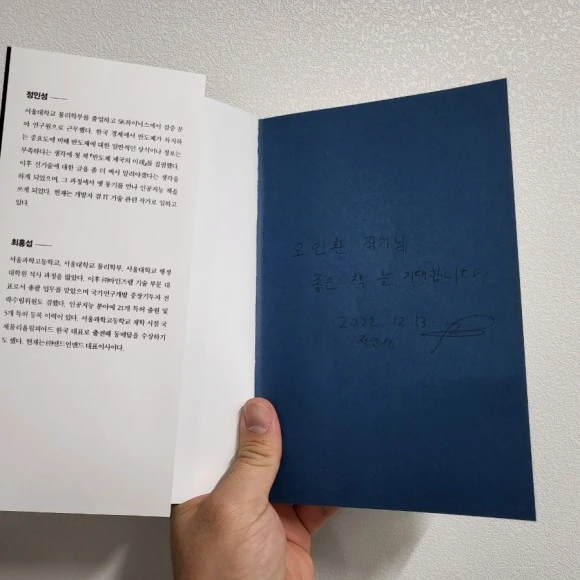 정인성
서울대학교 물리학부를 졸업하고 SK하이닉스에서 검증 분
야 연구원으로 근무했다. 한국 경제에서 반도체가 차지하
는 중요도에 비해 반도체에 대한 일반적인 상식이나 정보는
부족하다는 생각에 첫 책 『반도체 제국의 미래』를 집필했다.
이후 신기술에 대한 글을 좀 더 써서 알려야겠다는 생각을
하게 되었으며, 그 과정에서 맺 동기를 만나 인공지능 책을
쓰게 되었다. 현재는 개발자 겸 IT 기술 관련 작가로 일하고
있다.
최홍섭
서울과학고등학교, 서울대학교 물리학부, 서울대학교 행정
대학원 석사 과정을 밟았다. 이후 ㈜마인즈랩 기술 부문 대
표로서 총괄 업무를 맡았으며 국가연구개발 중장기투자 전
략수립위원도 겸했다. 인공지능 분야에 21개 특허 출원 및
5개 특허 등록 이력이 있다. 서울과학고등학교 재학 시절 국
제물리올림피아드 한국 대표로 출전해 동메달을 수상하기
도 했다. 현재는 ㈜앤드 대표이사이다.
오인환 작가님
좋은 책 늘 기대합니다.
2022. 12. 13.
정인성